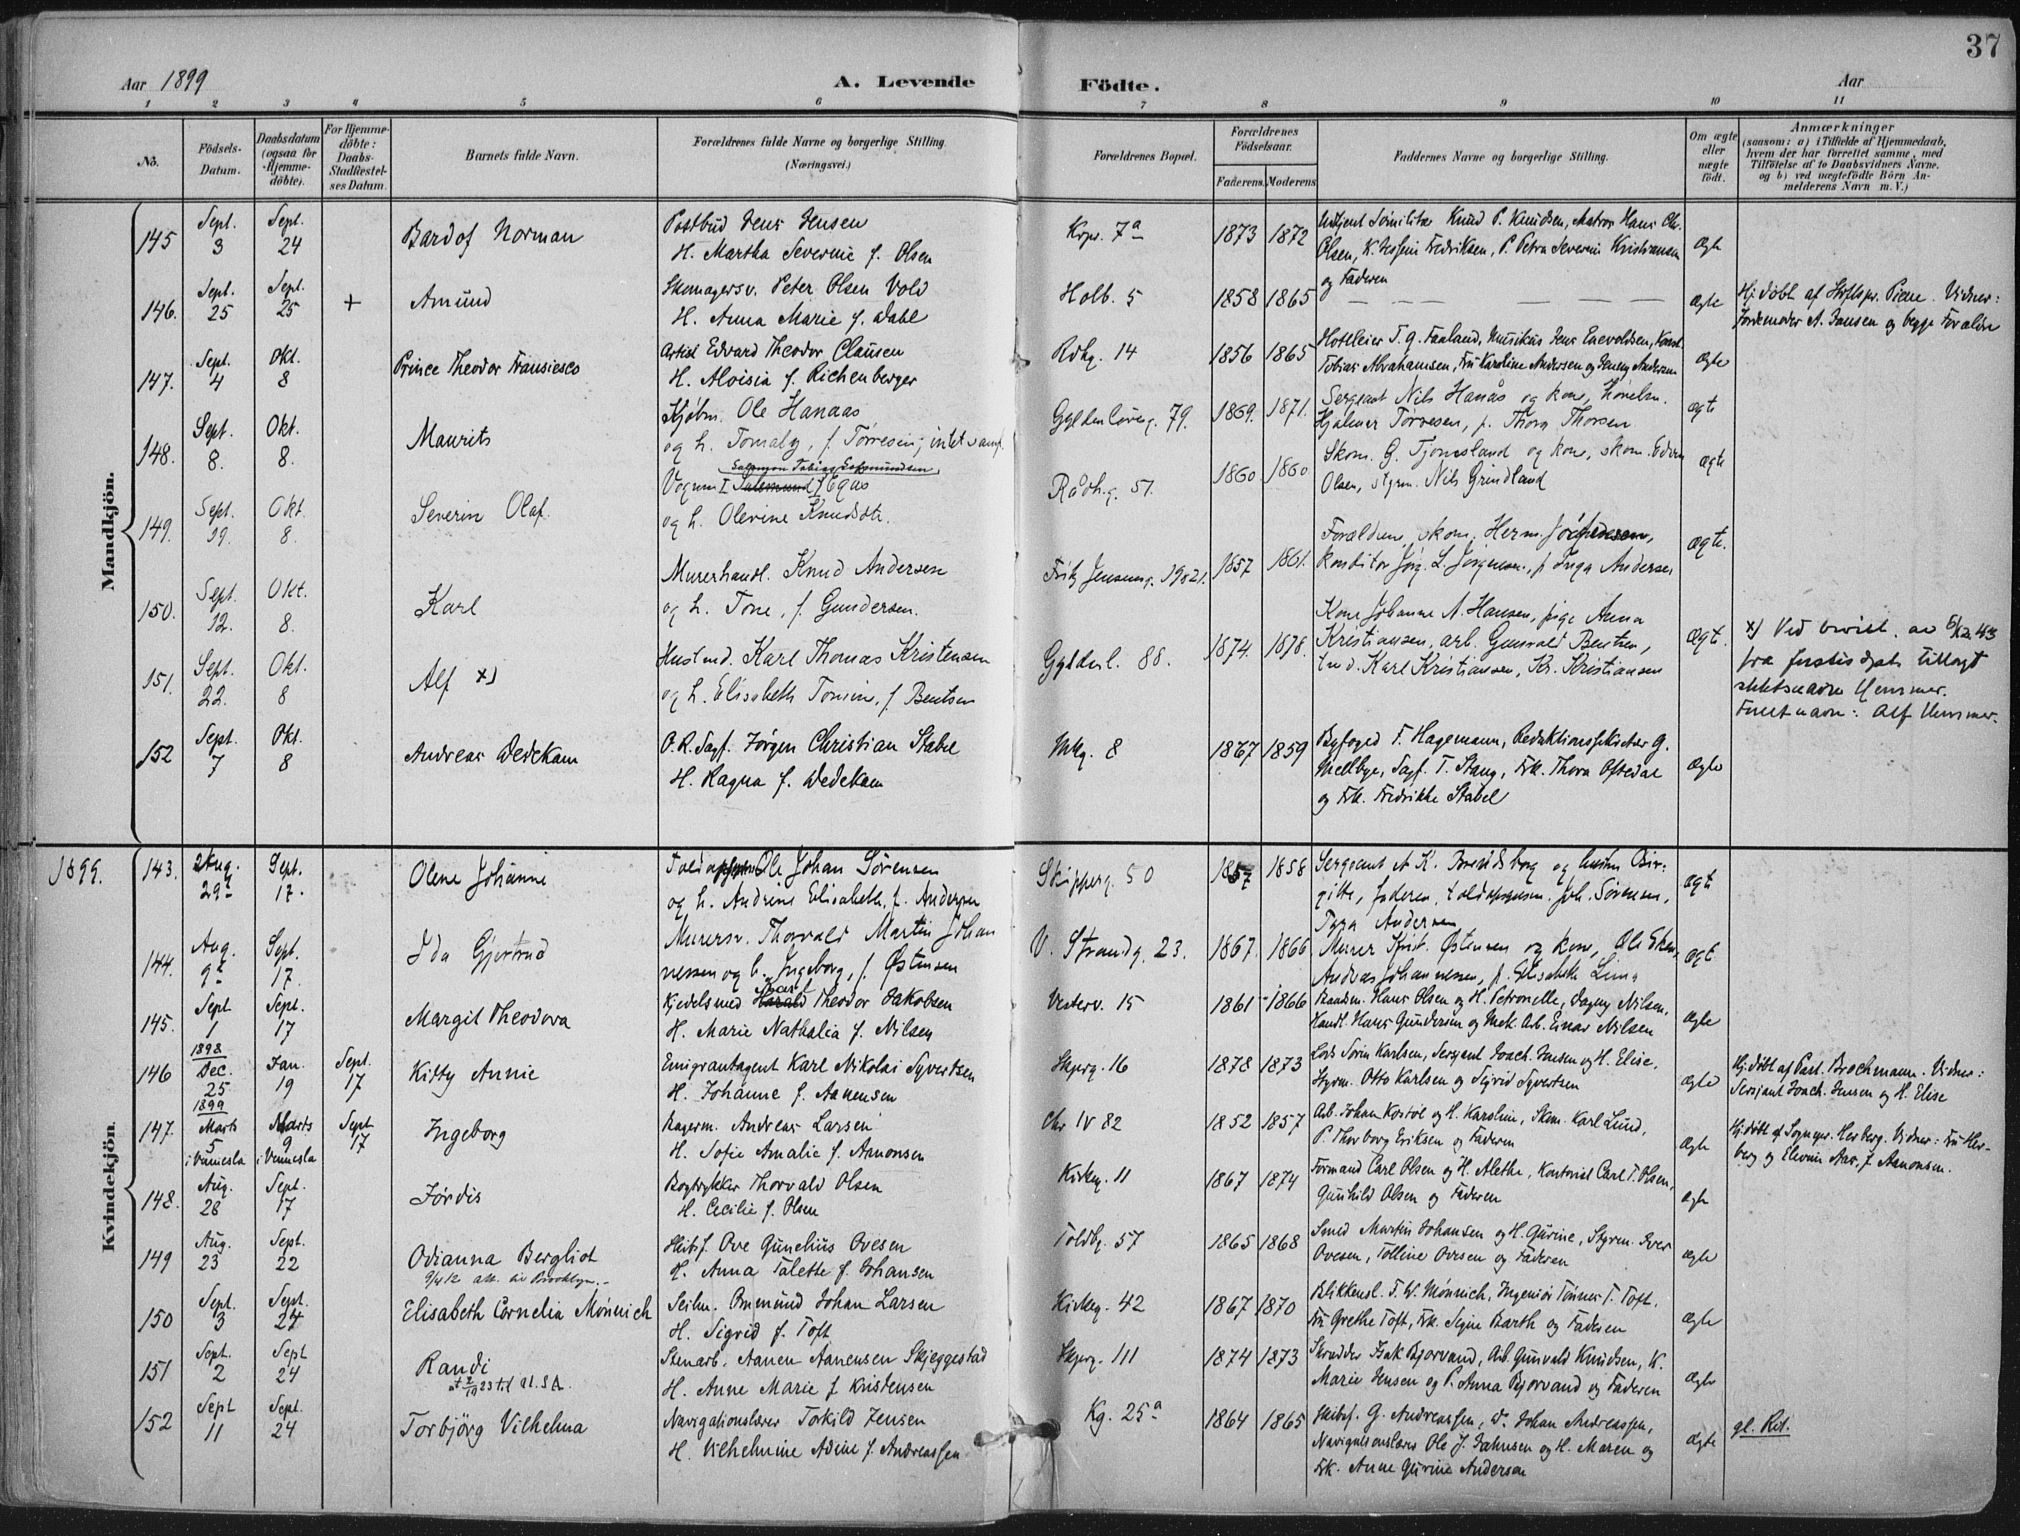 37
Aar 1899
A. Levende Födte.
Aar
1 2 3 4 5 6 7 8 9 10 11
No.
Födsels-Datum.
Daabsdatum (ogsaa for Hjemme-döbte).
For Hjemme-döbte: Daabs-Stadfæstel-ses Datum.
Barnets fulde Navn.
Forældrenes fulde Navne og borgerlige Stilling (Næringsvei.)
Forældrenes Bopæl.
Forældrenes Födselsaar.
Faderens. Moderens.
Faddernes Navne og borgerlige Stilling.
Om ægte eller uægte födt.
Anmærkninger
(saasom: a) i Tilfælde af Hjemmedaab, hvem der har forrettet samme, med Tilföielse af to Daabsvidners Navne. og b) ved uægtefödte Börn An-melderens Navn m. V.)
Mandkjön.
145 Sept. 3 Sept. 24 Bardof Norman
Postbud Jens Jensen
H. Martha Severine f. Olsen
7a 1873 1872
Knud P. Knudsen, Matros Hans Chr.
Olsen, K. Fredriksen, P. Petra Severine Kristiansen
og Faderen
ægte
146. Sept. 25 Sept. 25 + Amund
Skomagersv. Peter Olsen Vold
H. Anna Marie f. Dahl
Holb. 5 1858 1865 — — — — — —
ægte
Hj. döbt af Vidner:
Jordemoder A. Jansen og begge Forældre
147. Sept. 4 Okt. 8 Prince Theodor Fransiesco
Artist Edvard Theodor Clausen
H. Aloisia f. Richenberger
Rdhg. 14 1856 1865
T. G. Faaland, Musikus Jens Enevoldsen,
Tobias Abrahamsen, Fru Karoline Andersen og Jenny Andersen
ægte
148. Sept. 8. Okt. 8. Maurits
Kjøbm. Ole Hanaas
og h. Tomaly, f. Tørresen; intet samf.
Gyldenløveg. 79. 1869. 1871.
Sergeant Nils Hanås og kone,
Hjalmer Tørresen, p. Thora Thorsen
ægte
149. Sept. 19. Okt. 8. Severin Olaf.
Salomon Tobias
Vognm.
og h. Olevine Knudsdtr.
Rådhg. 51. 1860 1860
Skom. G. Tjomsland og kone, skom. Edvin
Olsen, styrm. Nils Grindland
ægte
150. Sept. 12. Okt. 8. Karl
Murerhandl. Knud Andersen
og h. Tone, f. Gundersen.
Fritz Jensensg. 19821. 1857 1861.
Forældrene, skom. Herm.
konditor Jørg. L. Jørgensen, p. Inga Andersen
ægte.
151. Sept. 22. Okt. 8 Alf x)
Karl Thomas Kristensen
og h. Elisabeth Tomine, f. Bentsen
Gyldenl. 88. 1874. 1878.
Kone Johanne A. Hansen, pige Anna
Kristiansen, arb. Gunvald Bentsen,
Karl Kristiansen, Kr. Kristiansen
ægt.
x) Ved bevill. av 5/12 43
fra justisdpt. tillagt
slektsnavn Hemmer.
Fullt navn: Alf Hemmer.
152 Sept. 7 Okt. 8 Andreas Dedekam
O. R. Sagf. Jørgen Christian Stabel
H. Ragna f. Dedekam
Mkg. 8 1867 1859
Byfoged F. Hagemann, Redaktionssekretær G.
Mellbye, Sagf. T. Stang, Frk. Thora Oftedal
og Frk. Fredrikke Stabel
ægte
1899.
Kvindekjön.
143. Aug. 29. Sept. 17. Olene Johanne
Ole Johan Sørensen
og h. Andrine Elisabeth, f. Andersen
Skipperg. 50 1857 1858
Sergeant A. K. Brendsborg og hustru Bir-
gitte, faderen, Joh. Sørensen,
Andersen
ægt
144. Aug. 9. Sept. 17. Ida Gjertrud
Murersv. Thorvald Martin Johan
nessen og h. Ingeborg, f. Østensen
V. Strandg. 23. 1867. 1866
Murer Krist. Østensen og kone, Ole
Andreas Johannessen, p. Elisabeth
ægt
145. Sept. 1 Sept. 17 Margit Theodora
Kjedelsmed Harald Theodor Jakobsen
H. Marie Nathalia f. Nilsen
Vesterv. 15 1861 1866
Baadsm. Hans Olsen og H. Petronelle, Dagny Nilsen,
Handl. Hans Gundersen og Mek. Arb. Einar Nilsen
ægte
146 1898 Dec. 25 Jan. 19 Sept. 17 Kitty Annie
Emigrantagent Karl Nikolai Syvertsen
H. Johanne f. Aanensen
Skpg. 16 1878 1873
Lods Sørin Karlsen, Sersjant Joach. Jensen og H. Elise,
Styrm. Otto Karlsen og Sigrid Syvertsen
ægte
Hj. döbt af Past. Brochmann. Vidner:
Sersjant Joach. Jensen og H. Elise
147. 1899 Marts 5 i Vennesla Marts 9 i Vennesla Sept 17 Ingeborg
Bagerm. Andreas Larsen
H. Sofie Amalie f. Aanonsen
Chr IV 82 1852 1857
Arb. Johan Kostøl og H. Karoline, Skom. Karl Lund,
P. Thorborg Eriksen og Faderen
ægte
Hj. döbt af Sognepr. Herberg. Vidner: Fru Her-
berg og Elevine Aas, f. Aanonsen.
148. Aug. 28 Sept. 17 Jørdis
Bogtrykker Thorvald Olsen
H. Cecilie f. Olsen
Kirkeg. 11 1867 1874
Formand Carl Olsen og H. Alethe, Kontorist Carl T. Olsen,
Gunhild Olsen og Faderen
ægte
149 Aug. 23 Sept. 22 Odianna Bergliot
9/4 12 att. til Brooklyn.
Skibsf. Ove Gunelius Ovesen
H. Anna Talette f. Johansen
Toldbg. 57 1865 1868
Smed Martin Johansen og H. Gurine, Styrm. Iver
Ovesen, Tolline Ovesen og Faderen
ægte
150 Sept. 3 Sept. 24 Elisabeth Cornelia Mønnich
Seilm. Ommund Johan Larsen
H. Sigrid f. Toft
Kirkeg. 42 1867 1870
Blikkensl. T. W. Mønnich, Ingeniør Tønnes T. Toft,
Fru Grethe Toft, Frk. Signe Barth og Faderen
ægte
151 Sept. 2 Sept 24 Randi
att 2/10 23 til U.S.A.
Stenarb. Aanen Aanensen Skjeggestad
H. Anne Marie f. Kristensen
Skpg. 111 1874 1873
Skredder Isak Bjorvand, Arb. Gunvald Knudsen, K.
Marie Jensen og P. Anna Bjorvand og Faderen
ægte
152 Sept 11 Sept. 24 Torbjörg Vilhelma
Navigationslærer Torkild Jensen
H. Vilhelmine Adine f. Andreassen
Kg. 25a 1864 1865
Skibsf. G. Andreassen, Johan Andreassen,
Navigationslærer Ole J. Jahnsen og H. Maren og
Frk. Anne Gurine Anderson
ægte
gl. Rit.